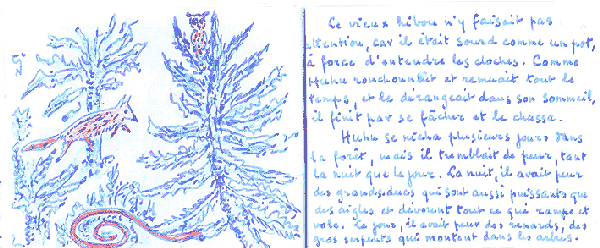 Ce vieux hibou n'y faisait pas
attention, car il était sourd comme un pot,
à force d'entendre les cloches. Comme
Huhu ronchonnait et remuait tout le
temps, et le dérangeait dans son sommeil,
il finit par se fâcher et le chassa.
Huhu se nicha plusieurs jours dans
la forêt, mais il tremblait de peur, tant
la nuit que le jour. La nuit, il avait peur
des grands-ducs qui sont aussi puissants que
des aigles et dévorent tout ce qui rampe et
vole. Le jour, il avait peur des renards, des
gros serpents qui montent dans les arbres.